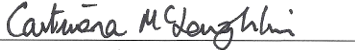 Caitríona McLoughlin